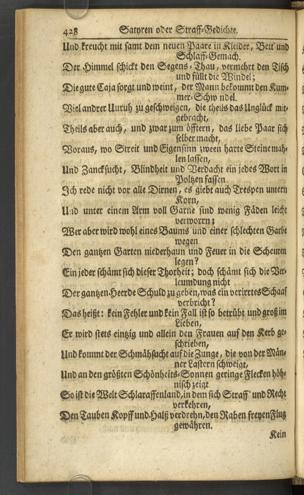 428 Satyren oder Straff-Gedichte.
Und kreucht mit samt dem neuen Paare in Kleider, Bett und
Schlaff-Gemach.
Der Himmel schickt den Segens-Thau, vermehrt den Tisch
und füllt die Windel;
Die gute Caja sorgt und weint, der Mann bekommt den Kum-
mer-Schwindel.
Viel andrer Unruh zu geschweigen, die theils das Unglück mit-
gebracht,
Theils aber auch, und zwar zum öfftern, das liebe Paar sich
selber macht,
Voraus, wo Streit und Eigensinn zween harte Steine mah-
len lassen,
Und Zancksucht, Blindheit und Verdacht ein jedes Wort in
Poltzen fassen.
Ich rede nicht vor alle Dirnen, es giebt auch Trespen unterm
Korn,
Und unter einem Arm voll Garne sind wenig Fäden leicht
verworrn:
Wer aber wird wohl eines Baums und einer schlechten Garbe
wegen
Den gantzen Garten niederhaun und Feuer in die Scheuren
legen?
Ein jeder schämt sich dieser Thorheit; doch schämt sich die Ver-
leumdung nicht
Der gantzen Heerde Schuld zu geben, was ein verirrtes Schaaf
verbricht?
Das heißt: kein Fehler und kein Fall ist so betrübt und groß im
Lieben,
Er wird stets eintzig und allein den Frauen auf den Kerb ge-
schrieben,
Und kommt der Schmähsucht auf die Zunge, die von der Män-
ner Lastern schweigt,
Und an den größten Schönheits-Sonnen geringe Flecken höh-
nisch zeigt
So ist die Welt Schlaraffenland, in dem sich Straff und Recht
verkehren,
Den Tauben Kopff und Halß verdrehn, den Raben freyen Flug
gewähren.
Kein